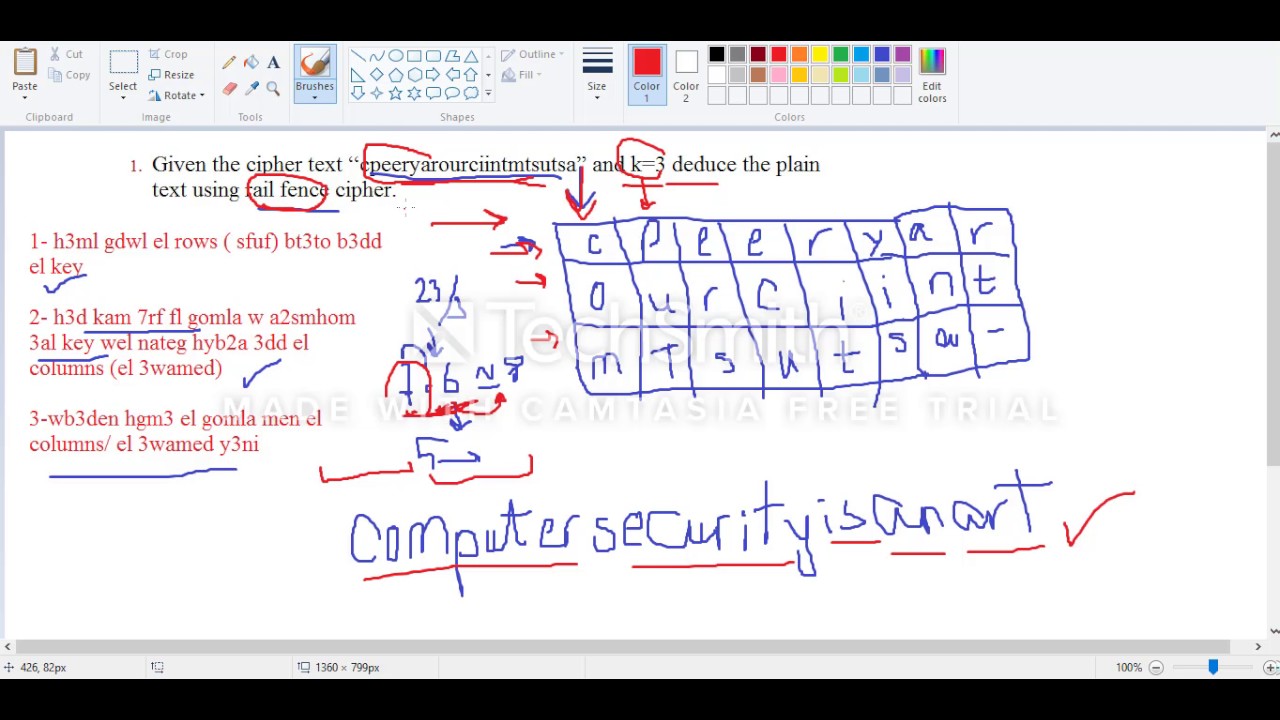 Paste
Cut
Copy
Clipboard
Select
Crop
Resize
Rotate
Image
A
Tools
Brushes
Shapes
Outline
Fill
Size
Color
1
Color
2
Edit
colors
Colors
1. Given the cipher text “cpeeryarourciintmtsutsa” and k=3 deduce the plain
text using rail fence cipher.
1- h3ml gdwl el rows ( sfuf) bt3to b3dd
el key
2- h3d kam 7rf fl gomla w a2smhom
3al key wel nateg hyb2a 3dd el
columns (el 3wamed)
3-wb3den hgm3 el gomla men el
columns/ el 3wamed y3ni
23/3
7.6 ~ 8
5
c p e e r y a r
o u r c i i n t
m t s u t s a -
TechSmith
MADE WITH CAMTASIA FREE TRIAL
computersecurityisanart
426, 82px
1360 × 799px
100%